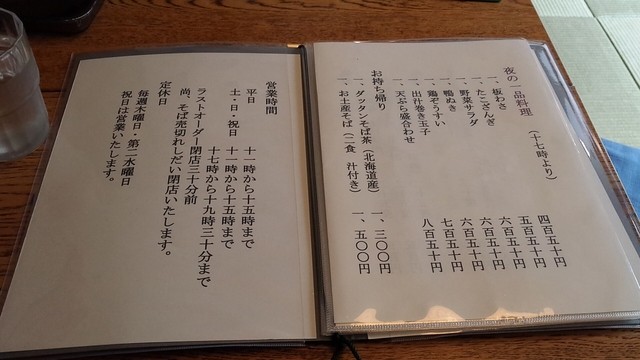 夜の一品料理　（十七時より）
一、板わさ　四百五十円
一、たこざんぎ　五百五十円
一、野菜サラダ　六百五十円
一、鴨ぬき　六百五十円
一、鶏ぞうすい　六百五十円
一、出汁巻き玉子　七百五十円
一、天ぷら盛合わせ　八百五十円
お持ち帰り
一、ダッタンそば茶（北海道産）　一、三〇〇円
一、お土産そば（二食　汁付き）　一、五〇〇円
営業時間
平日　十一時から十五時まで
土・日・祝日　十一時から十五時まで
十七時から十九時三十分まで
ラストオーダー閉店三十分前
尚、そば売切れしだい閉店いたします。
定休日
毎週木曜日・第二水曜日
祝日は営業いたします。